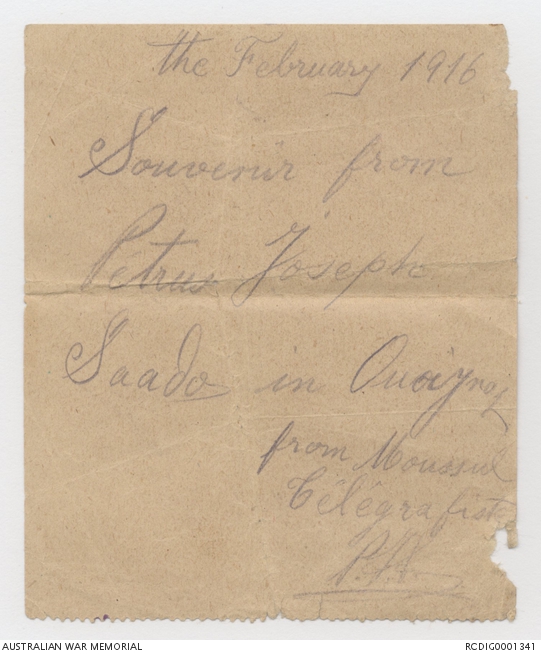 the February 1916
Souvenir from
Petrus Joseph
Saado in
from Moussul
Télégrafist
AUSTRALIAN WAR MEMORIAL
RCDIG0001341